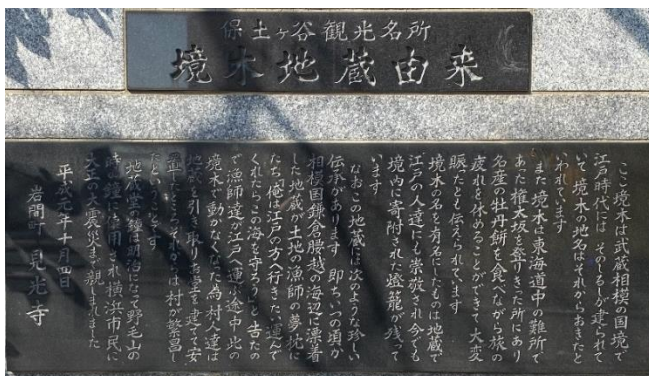 保土ヶ谷観光名所
境木地蔵由来
ここ境木は武蔵相模の国境で
江戸時代には そのしるしが建られて
いて 境木の地名はそれからおきたと
いわれています
また 境木は東海道中の難所で
あった権太坂を登りきた所にあり
名産の牡丹餅を食べながら旅の
疲れを休めることができ 大変
賑たとも伝えられています
境木の名を有名にしたものは地蔵で
江戸の人達にも崇敬され今でも
境内に寄附された燈籠が残って
います
なおこの地蔵には次のような珍しい
伝承があります 即ちいつの頃か
相模国鎌倉腰越の海辺に漂着
した地蔵が土地の漁師の夢枕に
たち「俺は江戸の方へ行きたい運んで
くれたらこの海を守ろう」と告たの
で漁師達が江戸へ運ぶ途中此の
境木で動かなくなった為 村人達は
地蔵を引き取り お堂を建て安
置したところそれからは村が繁昌し
たということです
地蔵堂の鐘は明治になって野毛山の
時の鐘に使用され横浜市民に
大正の大震災まで親しまれました
平成元年十月四日
岩間町 見光寺